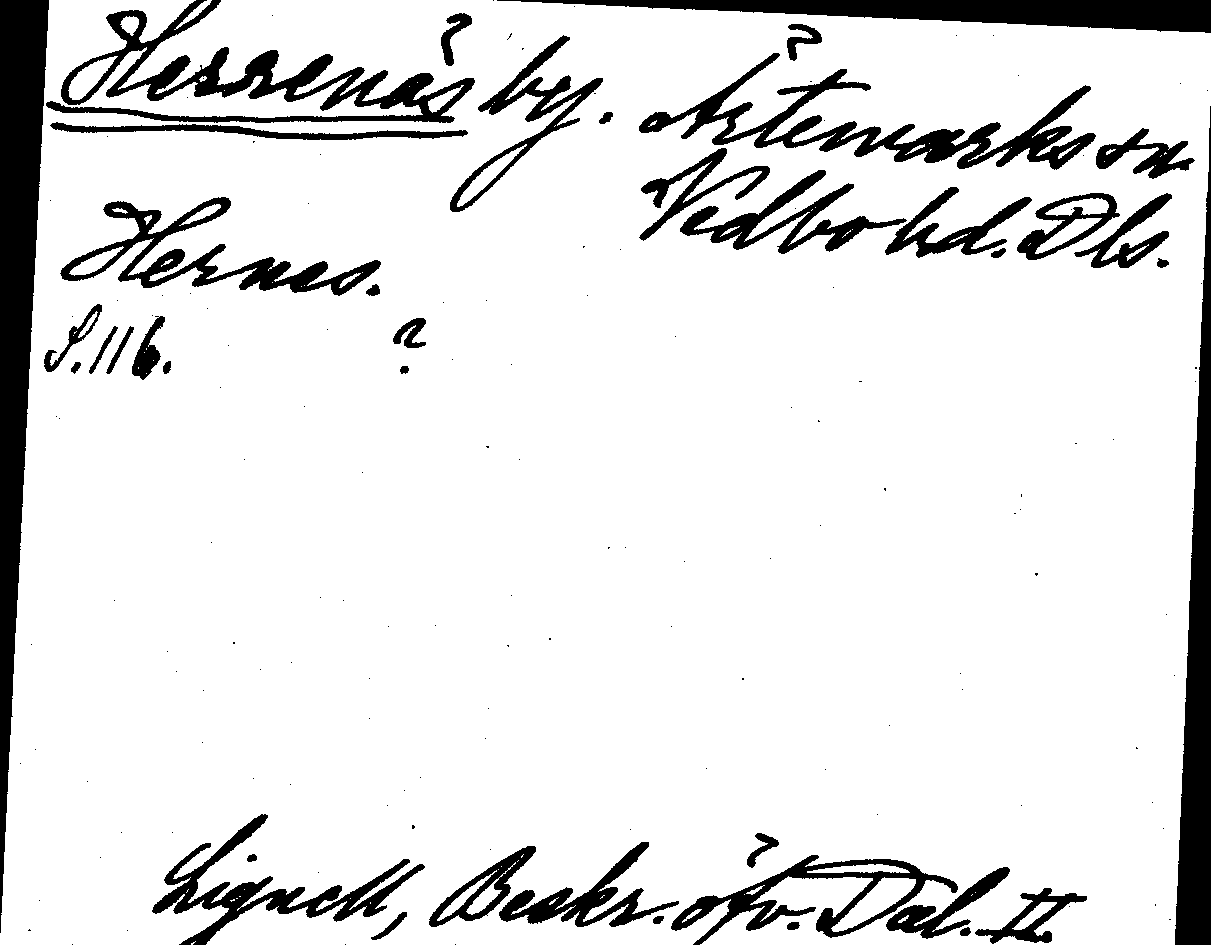 Herrenäs by. Ärtemarks sn
Vedbo hd. Dls.
Hernes.
S. 116. ?
Lignell, Beskr. öfv. Dal. II.